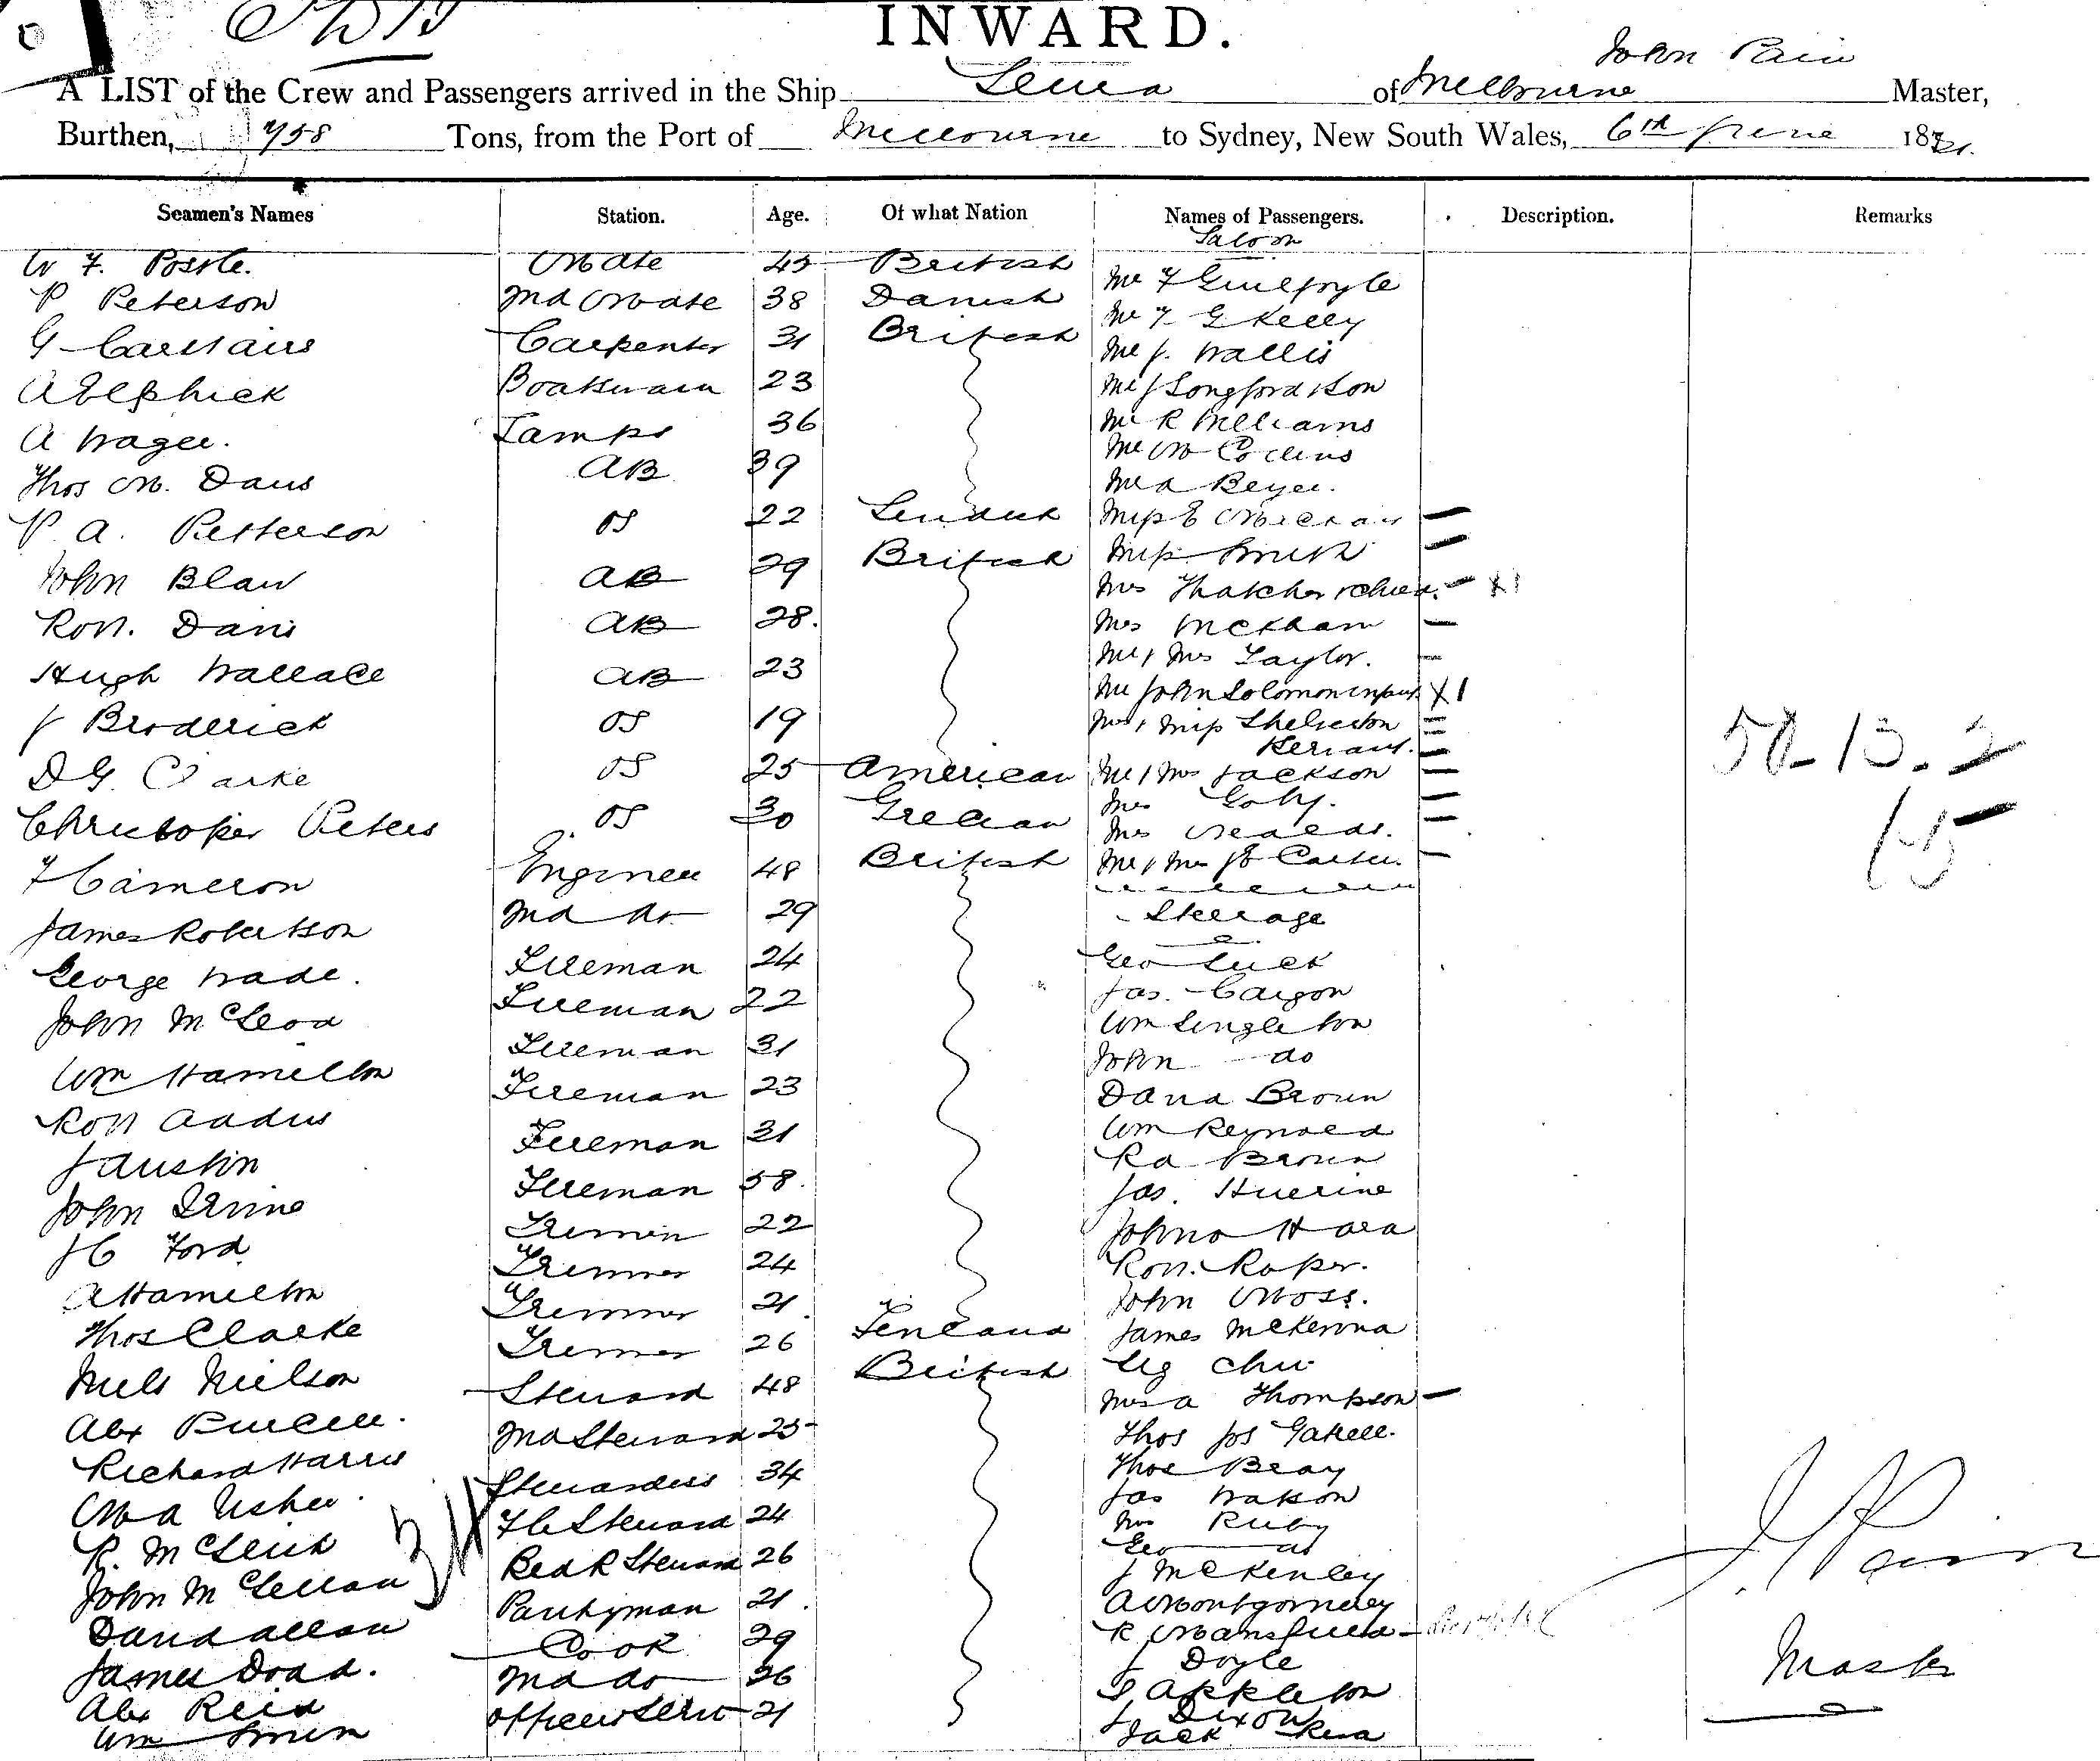 INWARD.
John Pain
A LIST of the Crew and Passengers arrived in the Ship of Melbourne Master,
Burthen, 758 Tons, from the Port of Melbourne to Sydney, New South Wales, 6th June 187
Seamen's Names Station. Age. Of what Nation Names of Passengers. Description. Remarks
Saloon
W F. Mate 45 British Mr F Guilfoyle
P Peterson 2nd Mate 38 Danish Mr F. G Kelly
G Carstairs Carpenter 31 British Mr J. Wallis
A Elphick Boatswain 23 Mr J Longford & Son
A Wager. Lamps 36 Mr R Williams
Thos M. Davis AB 39 Mr M Collins
P. A. Petterson OS 22 Mr A Beyer.
John Blair AB 29 British Miss Smith
Robt. Davis AB 28. Mrs Thatcher & child.
Hugh Wallace AB 23 Mr & Mrs Taylor.
J Broderick OS 19 Mr John Solomon infant X1
D G Clarke OS 25 American Mr & Mrs Jackson
Servant.
Christopher Peters OS 30 Grecian Mrs
F Cameron Engineer 48 British Mr & Mrs Carter.
James Robertson 2nd do 29 Steerage
George Wade. Fireman 24 Geo Luck
John McLeod Fireman 22 Jas.
Wm Singleton
Wm Hamilton Fireman 31 John do
Robt Fireman 23 David Brown
J Austin Fireman 31 Wm Reynold
Rd Brown
John Irvine Fireman 58. Jas.
J C Ford 22 John O Hara
A Hamilton Trimmer 24 Robt. Roper.
Thos Clarke Trimmer 21. John Moss.
Niels Nielson Trimmer 26 Finland James McKenna
Alex Purcell. Steward 48 British Ug Chu
Mrs A Thompson
Richard Harris 2nd Steward 25 Thos Jos
M A Usher. Stewardess 34 Thos Bray
R. McLeish F C Steward 24 Jas Watson
Mrs Ruby
Geo do
John McLellan Steward 26 J McKenley
David Allan Pantryman 21. A Montgomery
James Dodd. Cook 29 R Mansfield
J Doyle
Alex Reid 2nd do 26 S Appleton
Wm Smith Officers Servt 21 J Dixon
Jack
J Pain
Master